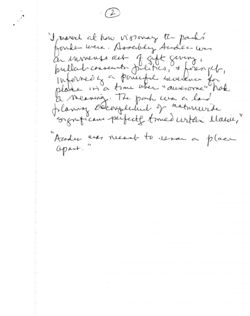 2
"I marvel at how visionary the park's
founders were. Assembling Acadia was
an immense act of gift giving,
bullet-conscious politics, & foresight,
informed by a powerful reverence for
place in a time when "awesome" had
a meaning. The park was a land
planning accomplishment of nationwide
significance perfectly timed
"Acadia was meant to remain a place
apart."